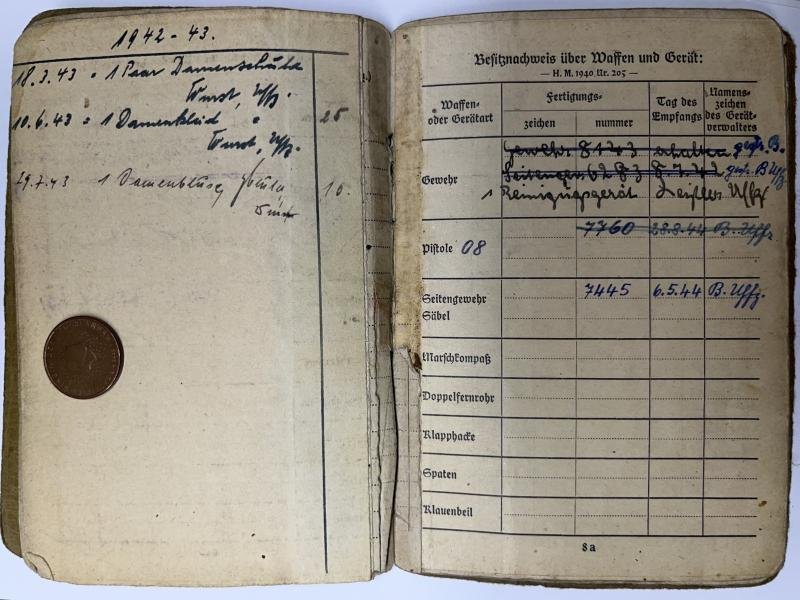 1942-43.
18.3.43 = 1 Paar Damenschuhe
Wurst, Uffz.
10.6.43 = 1 Damenkleid = 25
Wurst, Uffz.
29.7.43 1 Damenbluse 10.
Besitznachweis über Waffen und Gerät:
— H. M. 1940 Nr. 205 —
Waffen-
oder Gerätart
Fertigungs-
zeichen
nummer
Tag des
Empfangs
Namens-
zeichen
des Gerät-
verwalters
Gewehr 8143 erhalten gez. B.
Gewehr
Seitengew. 6283 8.7.42 gez. B Uffz.
1 Reinigungsgerät Uffz
7760 28.8.44 B. Uffz
Pistole 08
Seitengewehr 7445 6.5.44 B. Uffz.
Säbel
Marschkompaß
Doppelfernrohr
Klapphacke
Spaten
Klauenbeil
8a